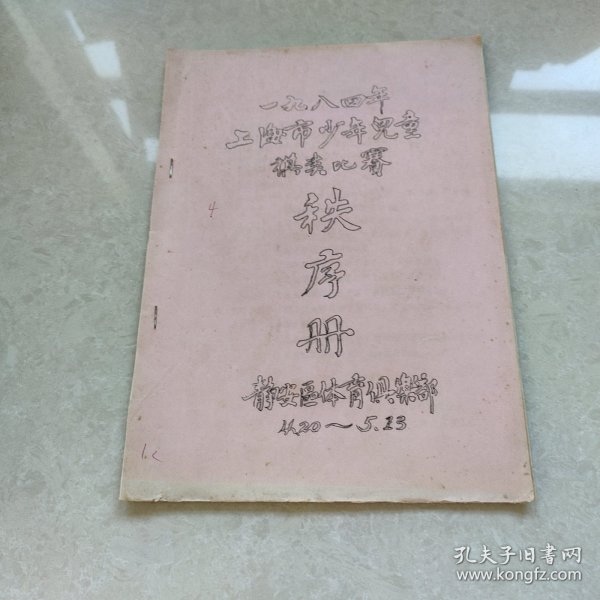 一九八四年
上海市少年兒童
棋类比赛
秩
序
册
静安區体育俱樂部
4.20～5.13
4
孔夫子旧书网
www.kongfz.com